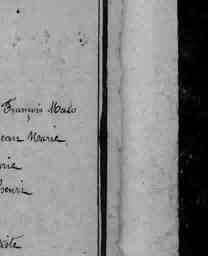 François Malo
Jean Marie
rie
Henri
xiste